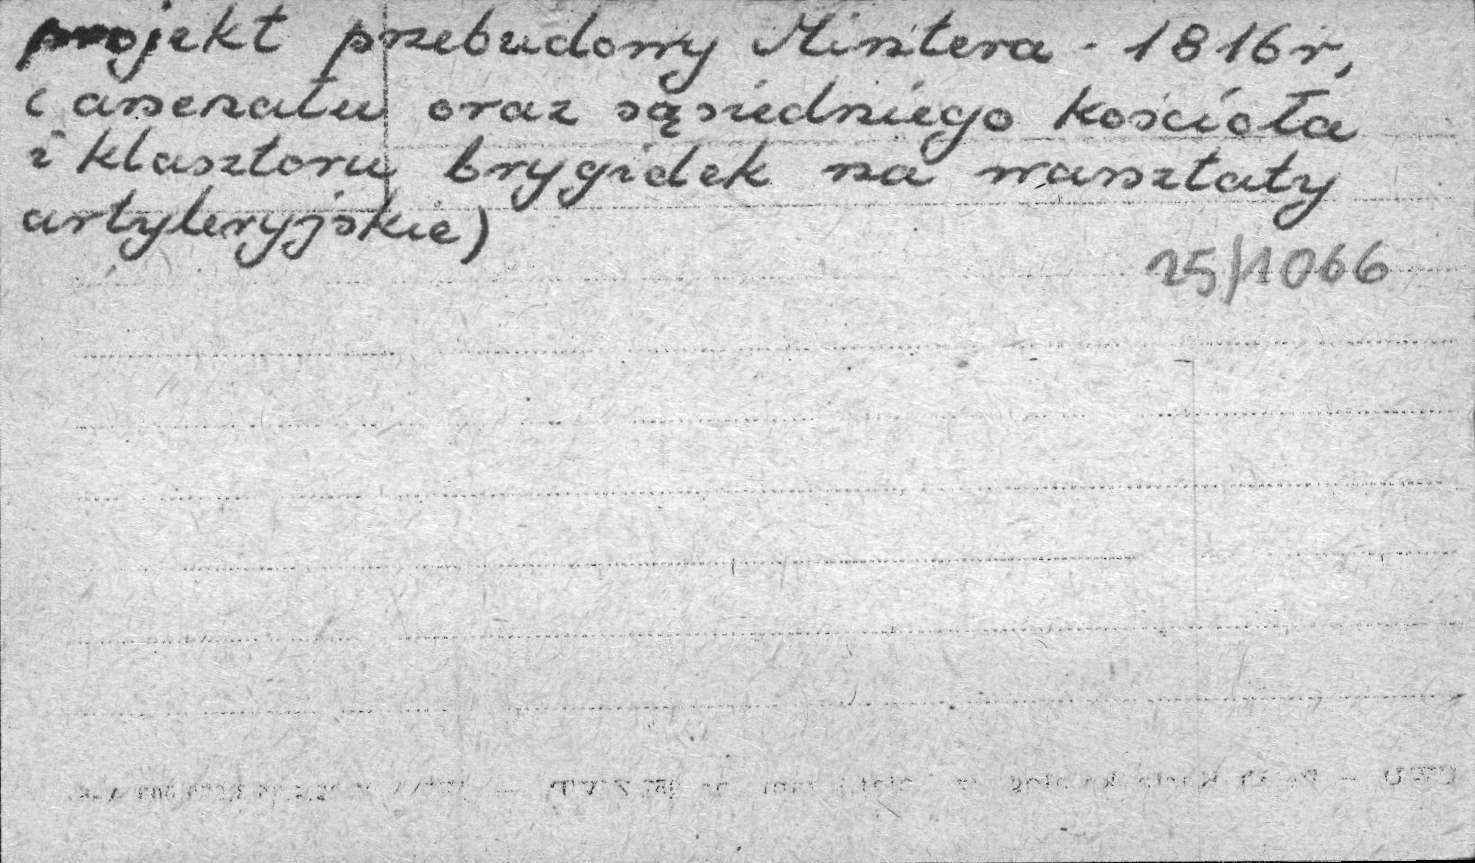 projekt przebudowy Mintera - 1816r,
( arsenału oraz sąsiedniego kościoła
i klasztoru brygidek na warsztaty
artyleryjskie)
25/1066